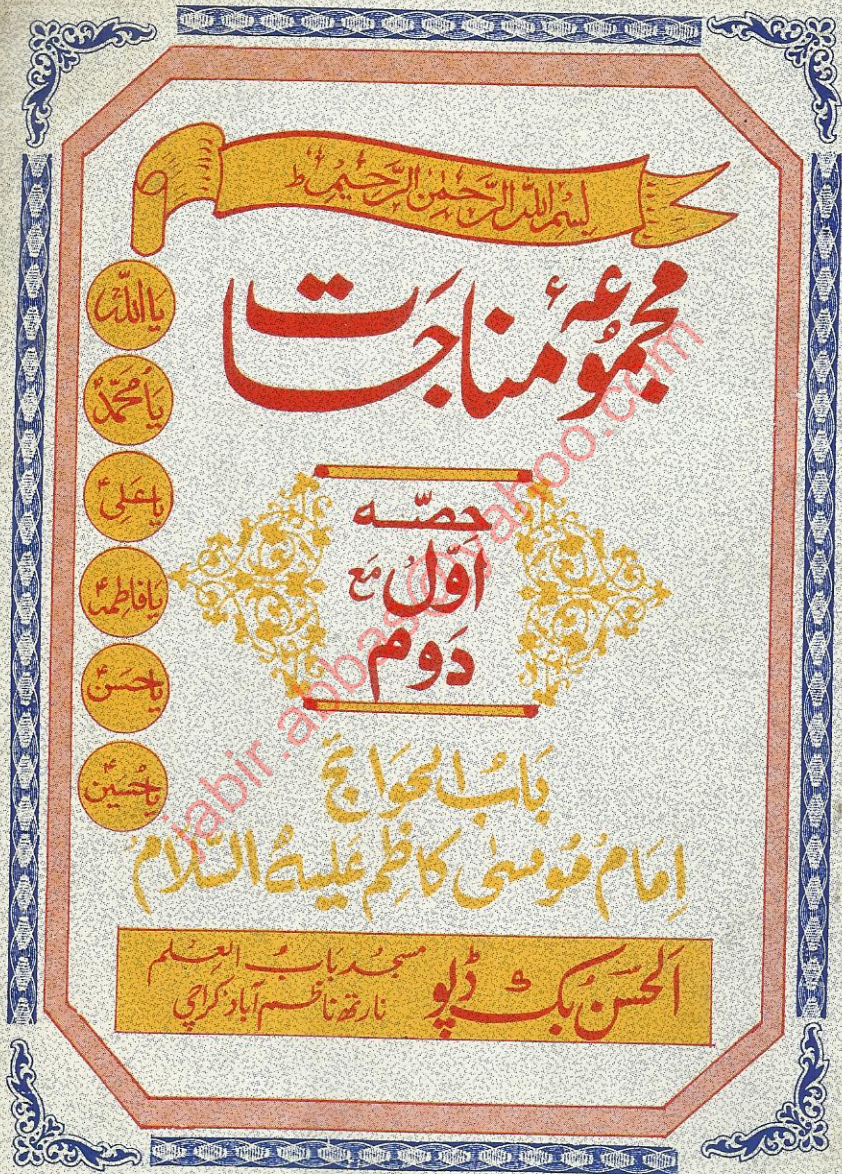 بِسْمِ اللّٰهِ الرَّحْمٰنِ الرَّحِیْمِ ط
مجموعۂ مناجات
یا اللہ
یا محمدؐ
یا علیؑ
یا فاطمہؑ
یا حسنؑ
یا حسینؑ
حصّہ
اوّل مع
دوم
بابُ الحوائج
امام موسیٰ کاظم علیہ السلام
الحسن بک ڈپو
مسجد باب العلم
نارتھ ناظم آباد کراچی
jabir.abbas@yahoo.com